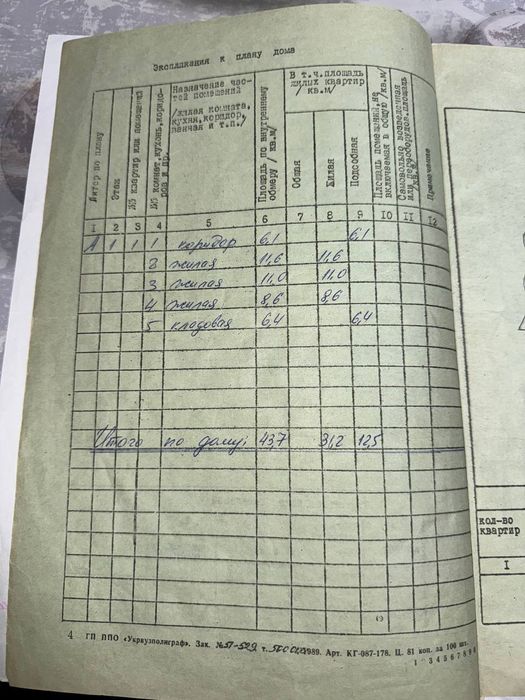 Экспликация к плану дома
Литер по плану
Этаж
№№ квартир или помещений
№№ комнат, кухонь, коридоров и пр.
Назначение частей помещений /жилая комната, кухня, коридор, ванная и т.п./
Площадь по внутреннему обмеру / кв.м/
В т.ч. площадь жилых квартир / кв.м/
Общая
Жилая
Подсобная
Площадь помещений, не включаемая в общую /кв.м/
Самовольно возведенная или переоборудов. площадь /кв.м/
Примечание
I 2 3 4 5 6 7 8 9 IO II I2
А 1 1 1 коридор 6,1 6,1
2 жилая 11,6 11,6
3 жилая 11,0 11,0
4 жилая 8,6 8,6
5 кладовая 6,4 6,4
Итого по дому: 43,7 31,2 12,5
4 ГП ППО «Укрвузполиграф». Зак. № 57-529 т. 1989. Арт. КГ-087-178. Ц. 81 коп. за 100 шт.
кол-во
квартир
I